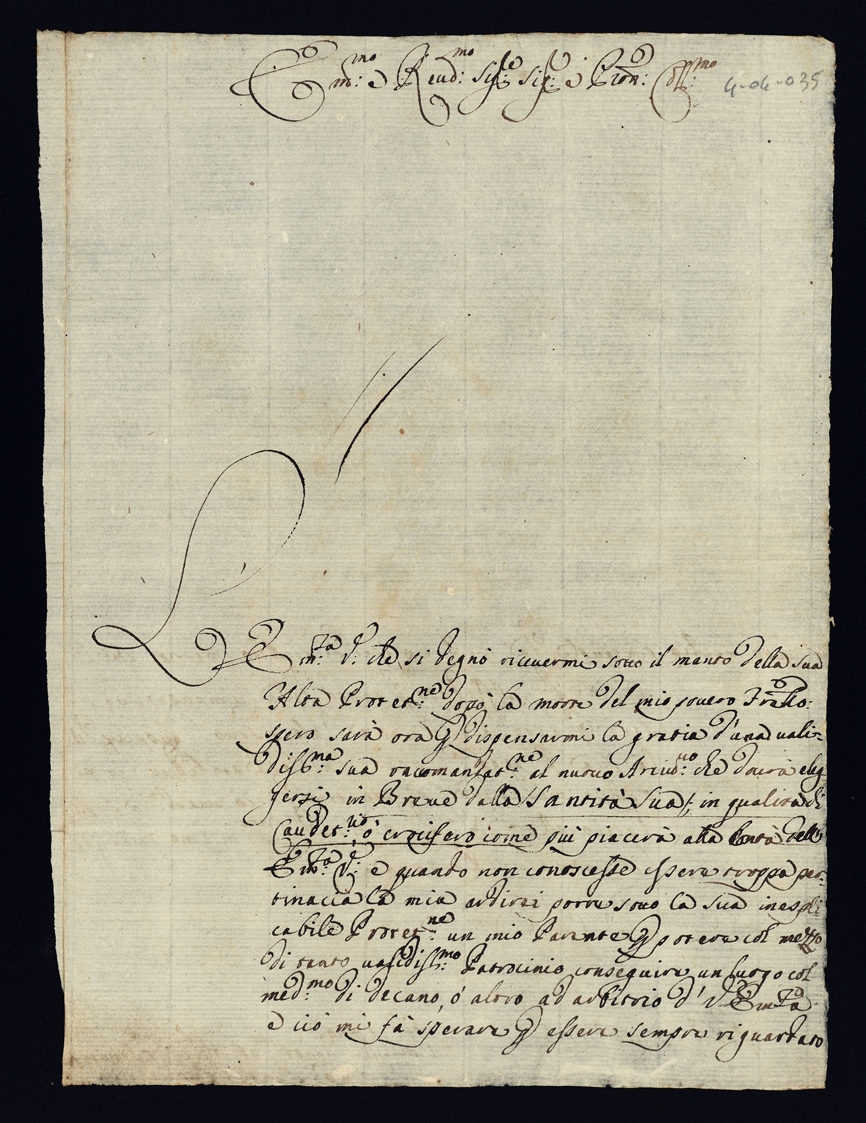 Em:mo e Reud: Sig:e Sig:e e Pron: Col:mo
4-04-035
L' Em:za V: che si degnò riceuermi sotto il manto della sua
Alta Protet:ne dopò la morte del mio pouero Fratlo:
spero sarà ora p dispensarmi la gratia d'una uali-
diss:ma sua racomandat:ne al nuouo Arciu:uo che dourà eleg
gersi in Breue dalla Santità Sua, in qualità di
Caudet:rio ò crocifero come più piacerà alla bontà dell
Em:za V: e quando non conoscesse essere troppa per-
tinaccia la mia ardirei porre sotto la sua inespli
cabile Protet:ne un mio Parente p potere col mezzo
di tanto ualidiss:mo Patrocinio conseguire un luogo col
med:mo di decano, ò altro ad arbitrio d' V Em:za
e ciò mi fà sperare p essere sempre riguardato